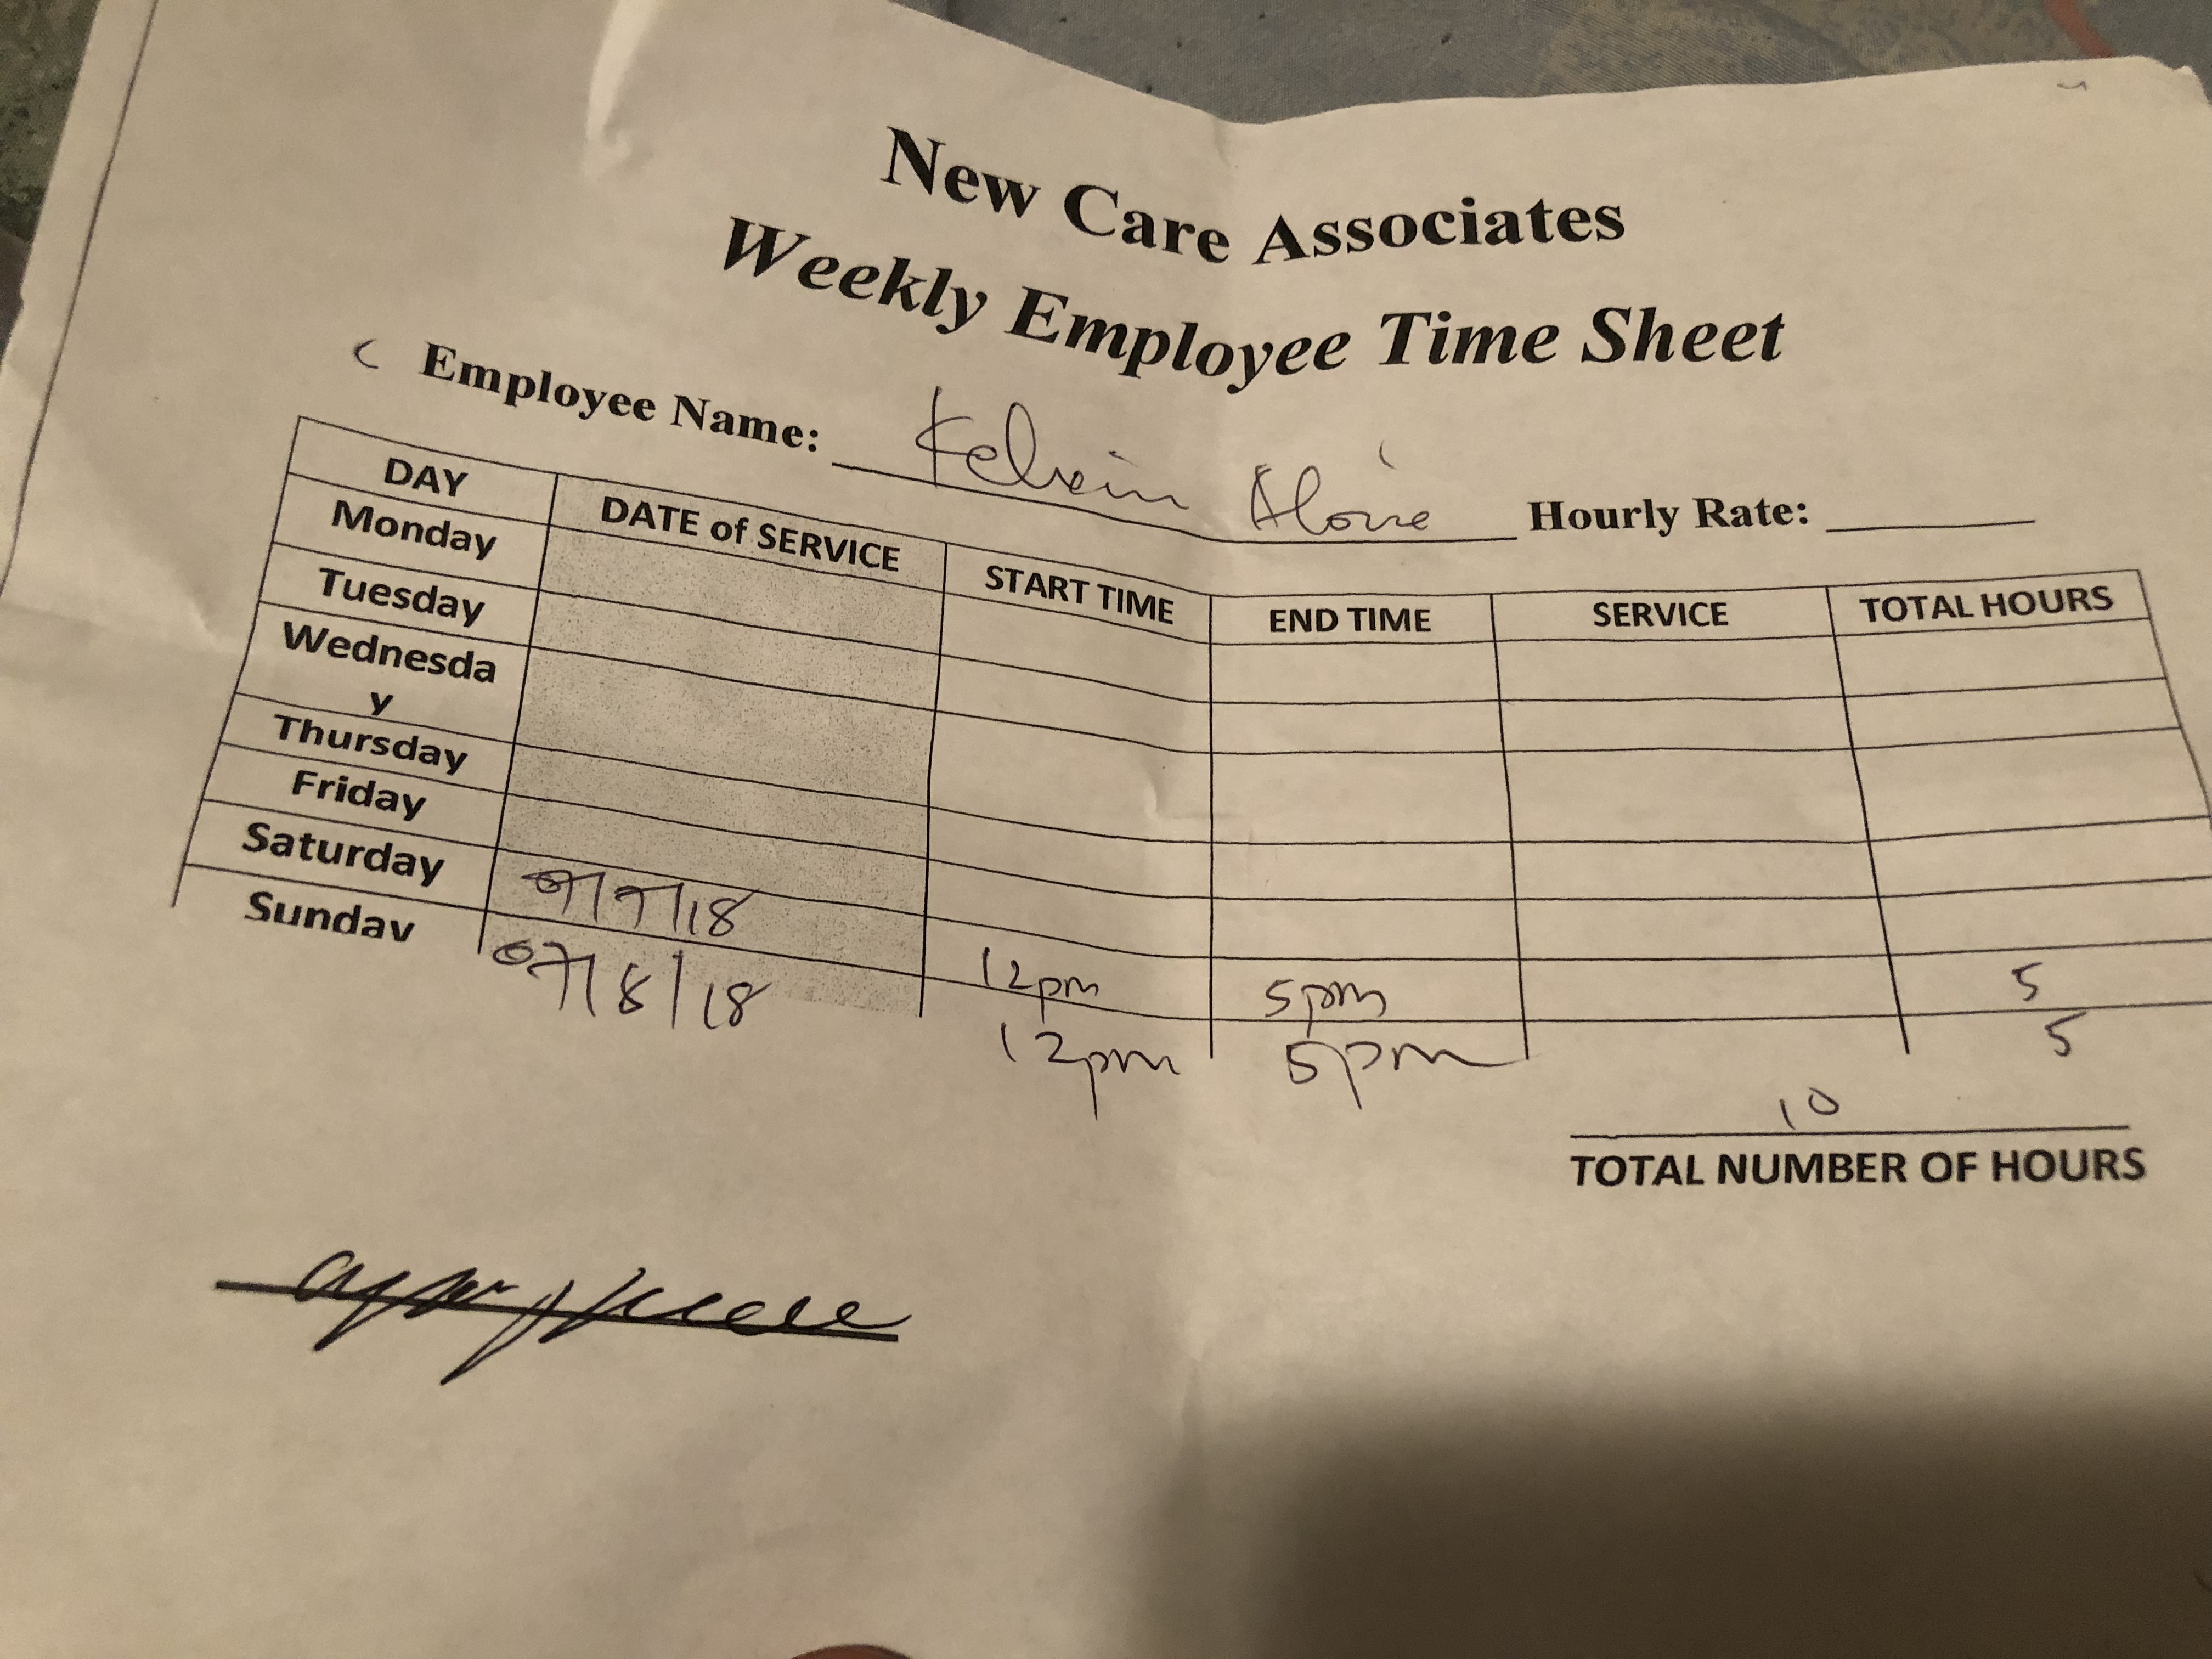 New Care Associates
Weekly Employee Time Sheet
Employee Name: Hourly Rate:
DAY DATE of SERVICE START TIME END TIME SERVICE TOTAL HOURS
Monday
Tuesday
Wednesda
y
Thursday
Friday
Saturday 07/7/18 12pm 5pm 5
Sunday 07/8/18 12pm 5pm 5
10
TOTAL NUMBER OF HOURS